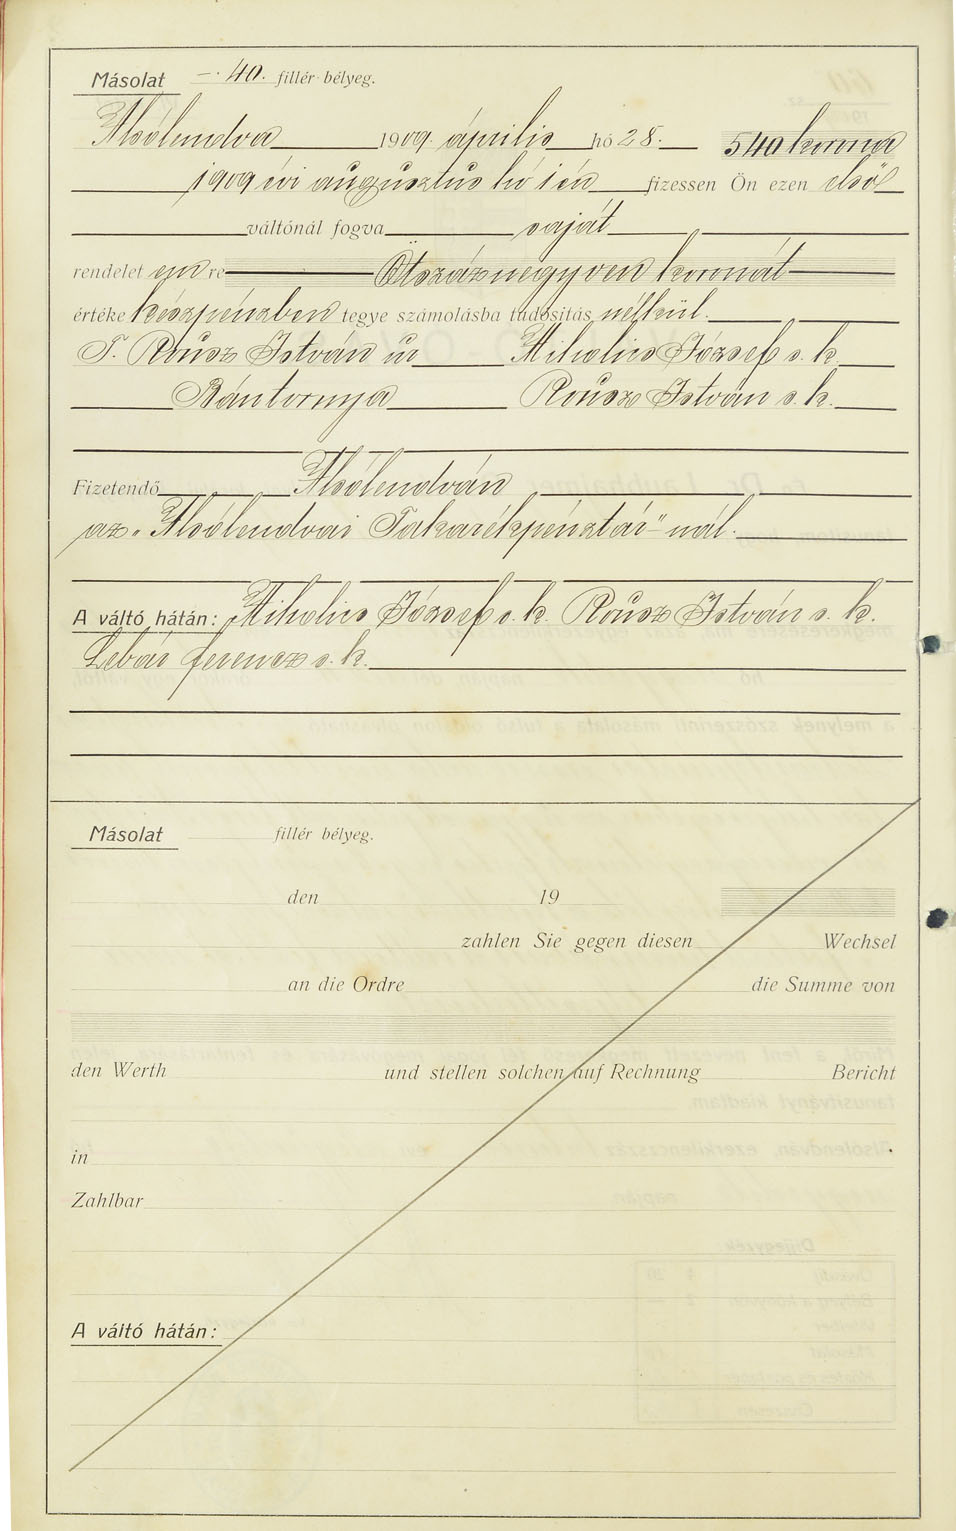 Másolat —. 40. fillér bélyeg.
Alsólendva 1909. április hó 28. 540 korona
1909 évi augusztus hó 1 én fizessen Ön ezen első
váltónál fogva saját
rendelet em re Ötszáznegyven koronát
értéke készpénzben tegye számolásba tudósitás nélkül.
T. Rousz István úr Miholics József s. k.
Bántornya Rousz István s. k.
Fizetendő Alsólendván
az „Alsólendvai Takarékpénztár"-nál.
A váltó hátán: Miholics József s. k. Rousz István s. k.
Lebár ferencz s. k.
Másolat fillér bélyeg.
den 19
zahlen Sie gegen diesen Wechsel
an die Ordre die Summe von
den Werth und stellen solchen auf Rechnung Bericht
in
Zahlbar
A váltó hátán: